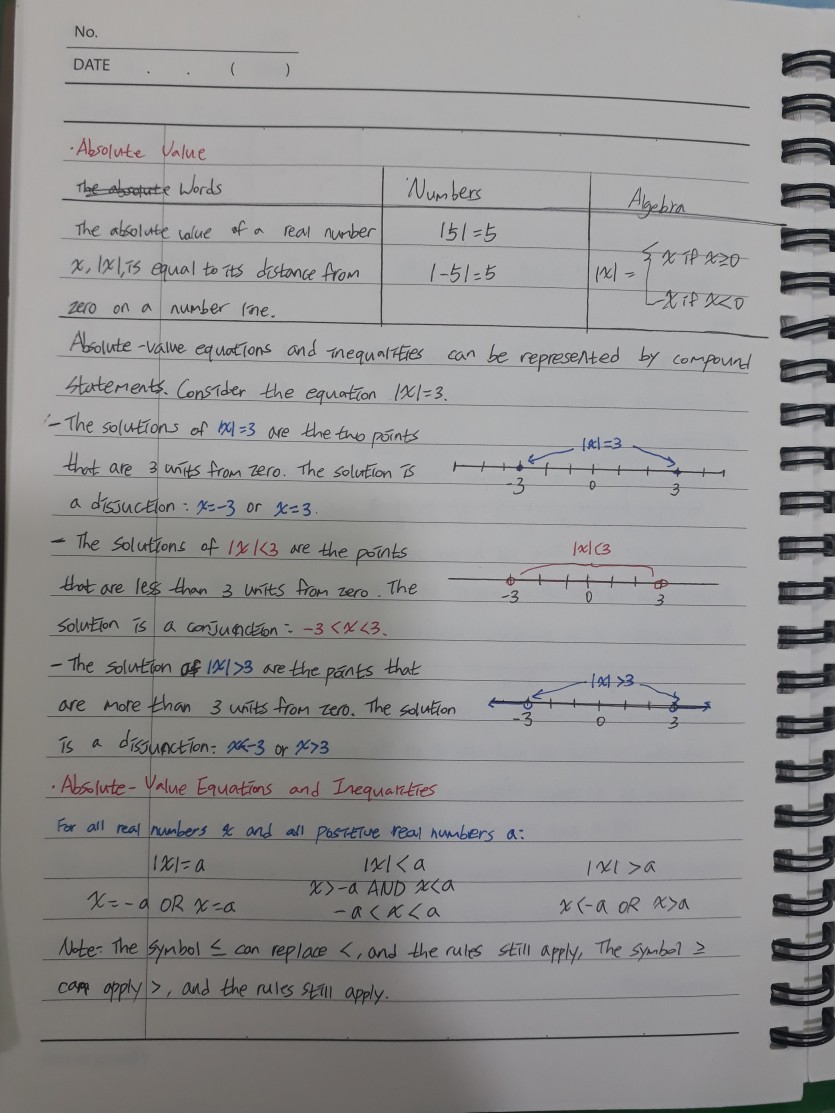 No.
DATE . . ( )
· Absolute Value
The absolute Words Numbers Algebra
The absolute value of a real number |5|=5
x, |x|, is equal to its distance from |-5|=5 |x| = { x if x≥0
zero on a number line. -x if x<0
Absolute-value equations and inequalities can be represented by compound
Statements. Consider the equation |x|=3.
- The solutions of |x|=3 are the two points
that are 3 units from zero. The solution is
a disjuction : x=-3 or x=3.
|x|=3
-3 0 3
- The solutions of |x|<3 are the points
that are less than 3 units from zero. The
solution is a conjunction : -3<x<3.
|x|<3
-3 0 3
- The solution of |x|>3 are the points that
are more than 3 units from zero. The solution
is a disjunction: x<-3 or x>3
|x|>3
-3 0 3
· Absolute-Value Equations and Inequalities
For all real numbers x and all positive real numbers a:
|x|=a |x|<a |x|>a
x>-a AND x<a
x=-a OR x=a -a<x<a x<-a OR x>a
Note: The symbol ≤ can replace <, and the rules still apply, The symbol ≥
can apply >, and the rules still apply.